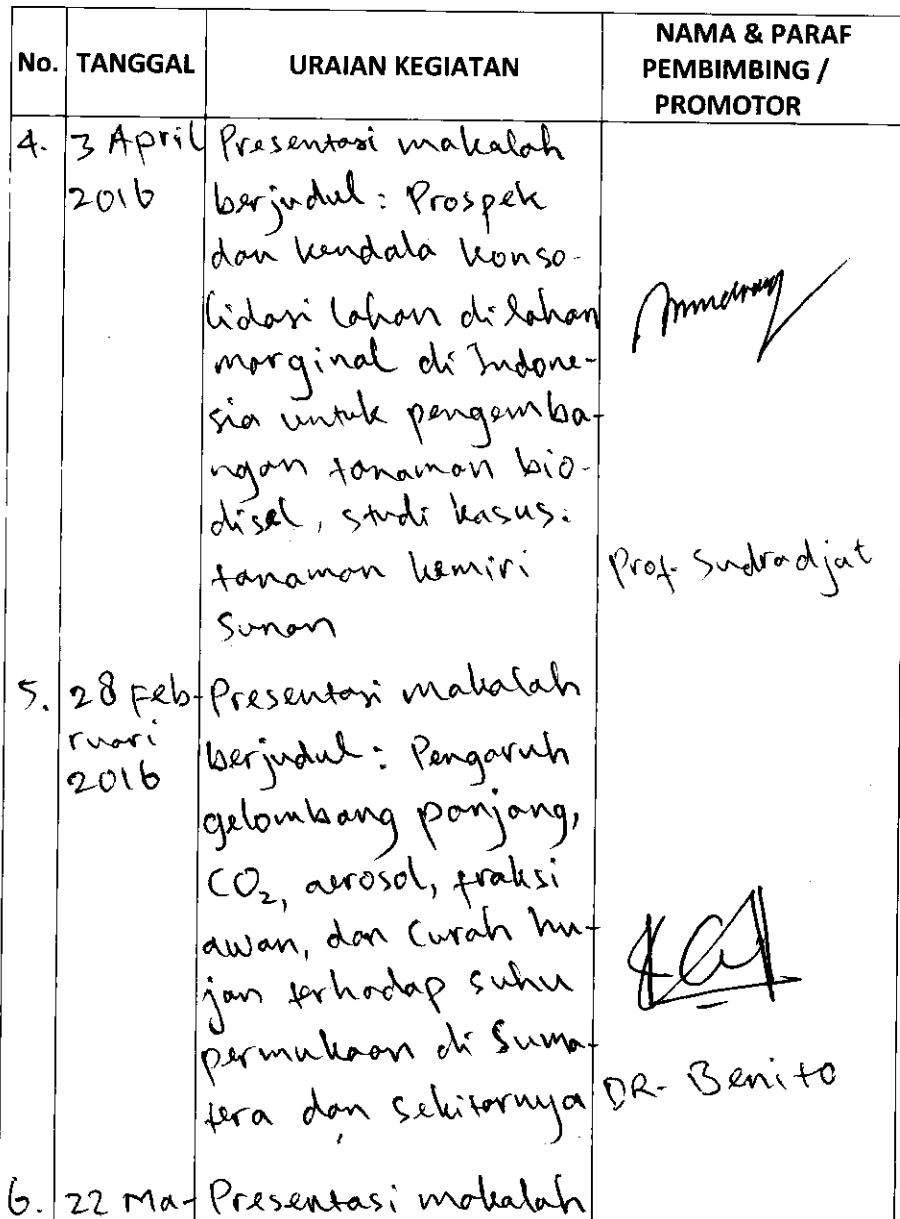 No. TANGGAL URAIAN KEGIATAN NAMA & PARAF PEMBIMBING / PROMOTOR
4. 3 April 2016
Presentasi makalah
berjudul: Prospek
dan kendala konso-
lidasi lahan di lahan
marginal di Indone-
sia untuk pengemba-
ngan tanaman bio-
disel, studi kasus:
tanaman kemiri
sunan
Prof. Sudradjat
5. 28 Feb-
ruari
2016
Presentasi makalah
berjudul: Pengaruh
gelombang panjang,
CO₂, aerosol, fraksi
awan, dan curah hu-
jan terhadap suhu
permukaan di Suma-
tera dan sekitarnya
DR. Benito
6. 22 Ma-
Presentasi makalah